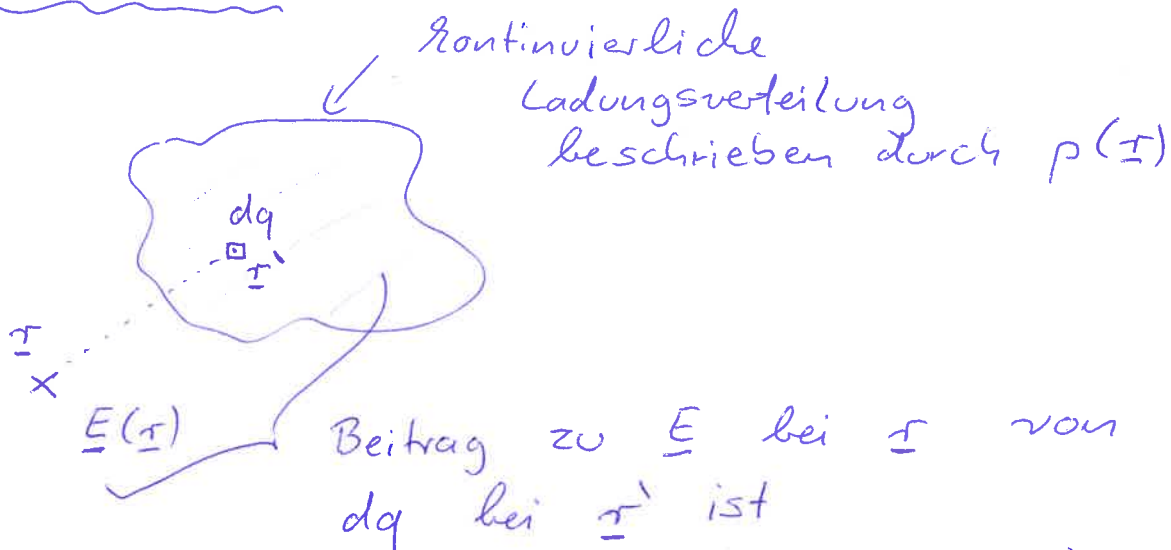 kontinuierliche
Ladungsverteilung
beschrieben durch ρ(r)
dq
r'
r
E(r)
Beitrag zu E bei r von
dq bei r' ist